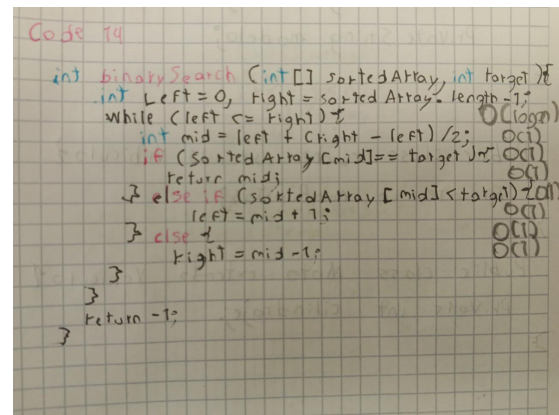 Code 14
int binarySearch (int[] sortedArray, int target){
int Left = 0, right = sorted Array. length -1;
while (left <= right) { O(logn)
int mid = left + (right - left) /2; O(1)
if (sorted Array [mid]== target ){ O(1)
return mid; O(1)
} else if (sortedArray [mid] < target) { O(1)
left = mid + 1; O(1)
} else { O(1)
right = mid -1; O(1)
}
}
return -1;
}